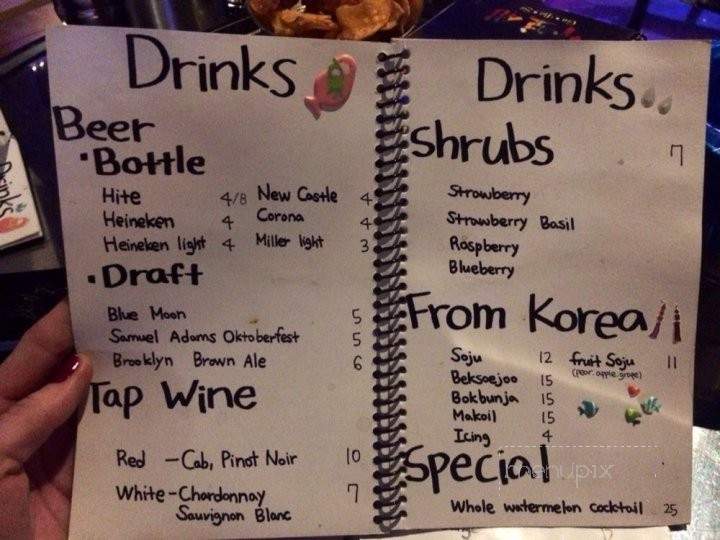 Drinks
Beer
• Bottle
Hite 4/8 New Castle 4
Heineken 4 Corona 4
Heineken light 4 Miller light 3
• Draft
Blue Moon 5
Samuel Adams Oktoberfest 5
Brooklyn Brown Ale 6
Tap Wine
Red - Cab, Pinot Noir 10
White - Chardonnay 7
Sauvignon Blanc
Drinks
Shrubs 7
Strawberry
Strawberry Basil
Raspberry
Blueberry
From Korea
Soju 12 fruit Soju 11
(pear. apple. grape)
Beksoejoo 15
Bokbunja 15
Makoli 15
Icing 4
Special
menupix
Whole watermelon cocktail 25
Drinks